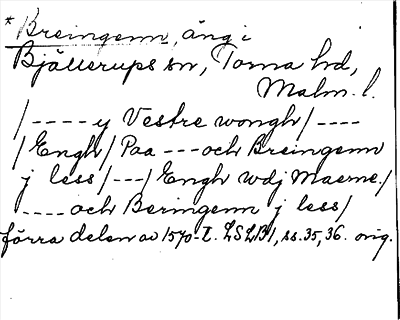 * Breingenn, äng i
Bjällerups sn, Torna hd,
Malm. l.
/---- y Vestre wongh/----
/Engh/ Paa --- och Breingenn
j less/---/Engh wdj Maerne./
---- och Beringenn j less/
förra delen av 1570-t. LSLB1, ss. 35, 36. orig.